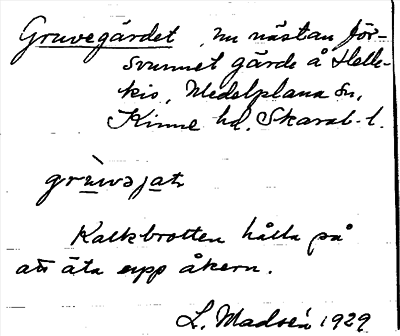 Gruvegärdet, nu nästan för-
svunnet gärde å Helle-
kis, Medelplana sn,
Kinne hd. Skarab. l.
grùvəjat
Kalkbrotten hålla på
att äta upp åkern.
L. Madsén 1929